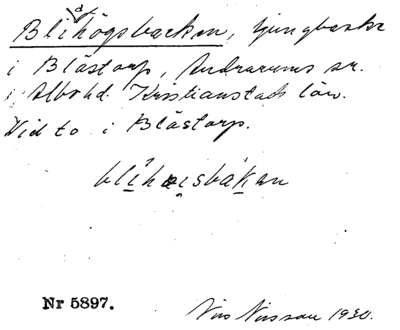 Blidhögsbacken, ljungbacke
i Blåstorp, Andrarums sn.
i Albo hd. Kristianstads län.
Vid to i Blåstorp.
Nr 5897.
Nils Nilsson 1930.